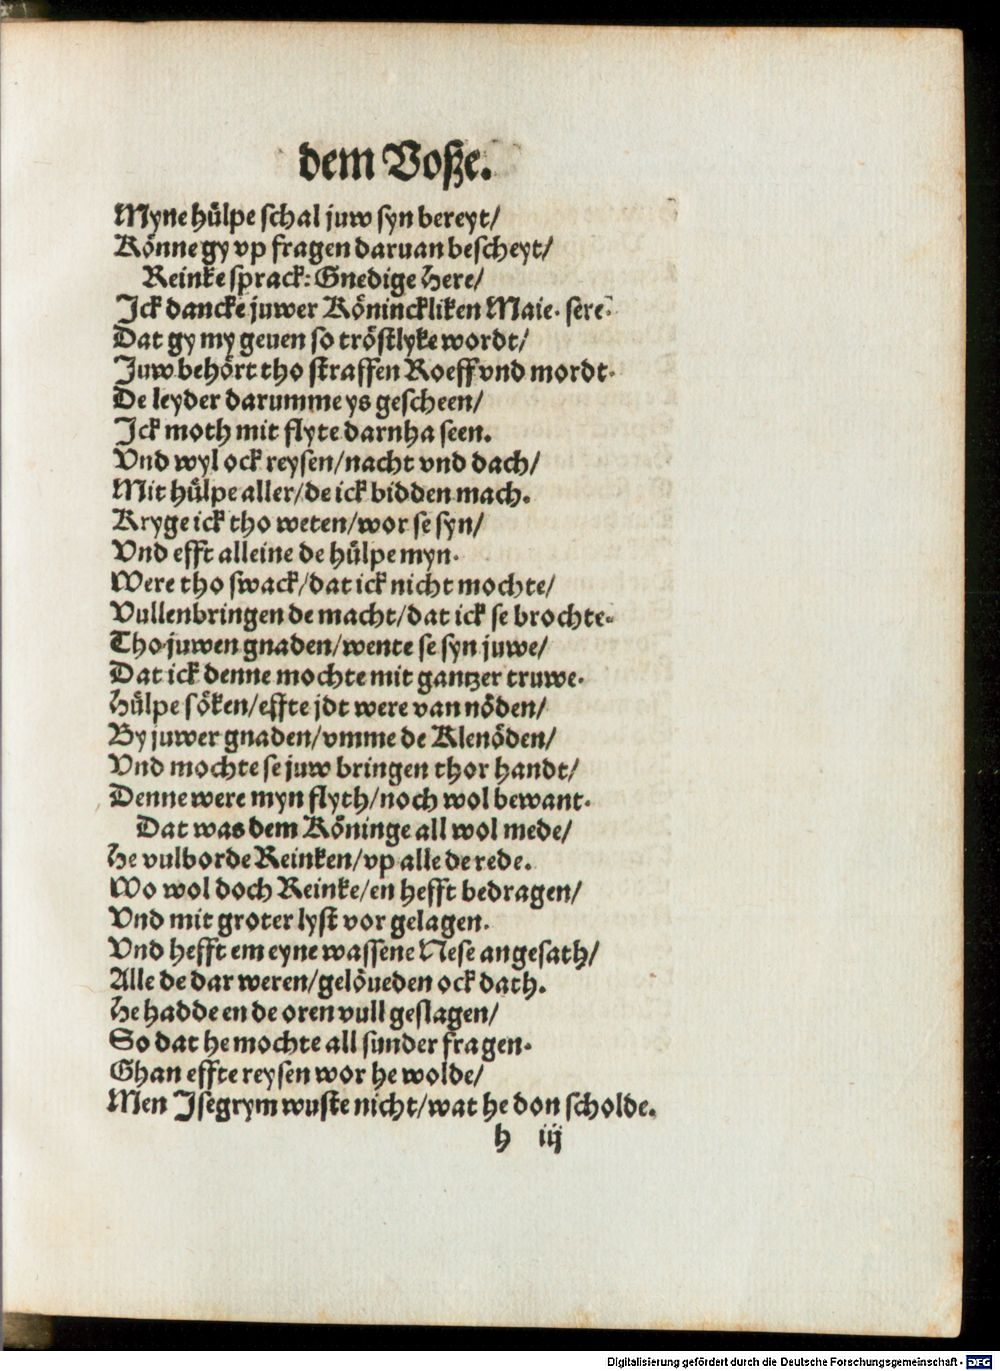 dem Voße.
Myne hülpe schal juw syn bereyt/
Könne gy vp fragen daruan bescheyt/
Reinke sprack: Gnedige Here/
Ick dancke juwer Köninckliken Maie. sere.
Dat gy my geuen so tröstlyke wordt/
Juw behört tho straffen Roeff vnd mordt.
De leyder darumme ys gescheen/
Ick moth mit flyte darnha seen.
Vnd wyl ock reysen/nacht vnd dach/
Mit hülpe aller/de ick bidden mach.
Kryge ick tho weten/wor se syn/
Vnd efft alleine de hülpe myn.
Were tho swack/dat ick nicht mochte/
Vullenbringen de macht/dat ick se brochte.
Tho juwen gnaden/wente se syn juwe/
Dat ick denne mochte mit gantzer truwe.
Hülpe söken/effte jdt were van nöden/
By juwer gnaden/vmme de Klenöden/
Vnd mochte se juw bringen thor handt/
Denne were myn flyth/noch wol bewant.
Dat was dem Köninge all wol mede/
He vulborde Reinken/vp alle de rede.
Wo wol doch Reinke/en hefft bedragen/
Vnd mit groter lyst vor gelagen.
Vnd hefft em eyne wassene Nese angesath/
Alle de dar weren/gelöueden ock dath.
He hadde en de oren vull geslagen/
So dat he mochte all sunder fragen.
Ghan effte reysen wor he wolde/
Men Isegrym wuste nicht/wat he don scholde.
h iij
Digitalisierung gefördert durch die Deutsche Forschungsgemeinschaft - DFG